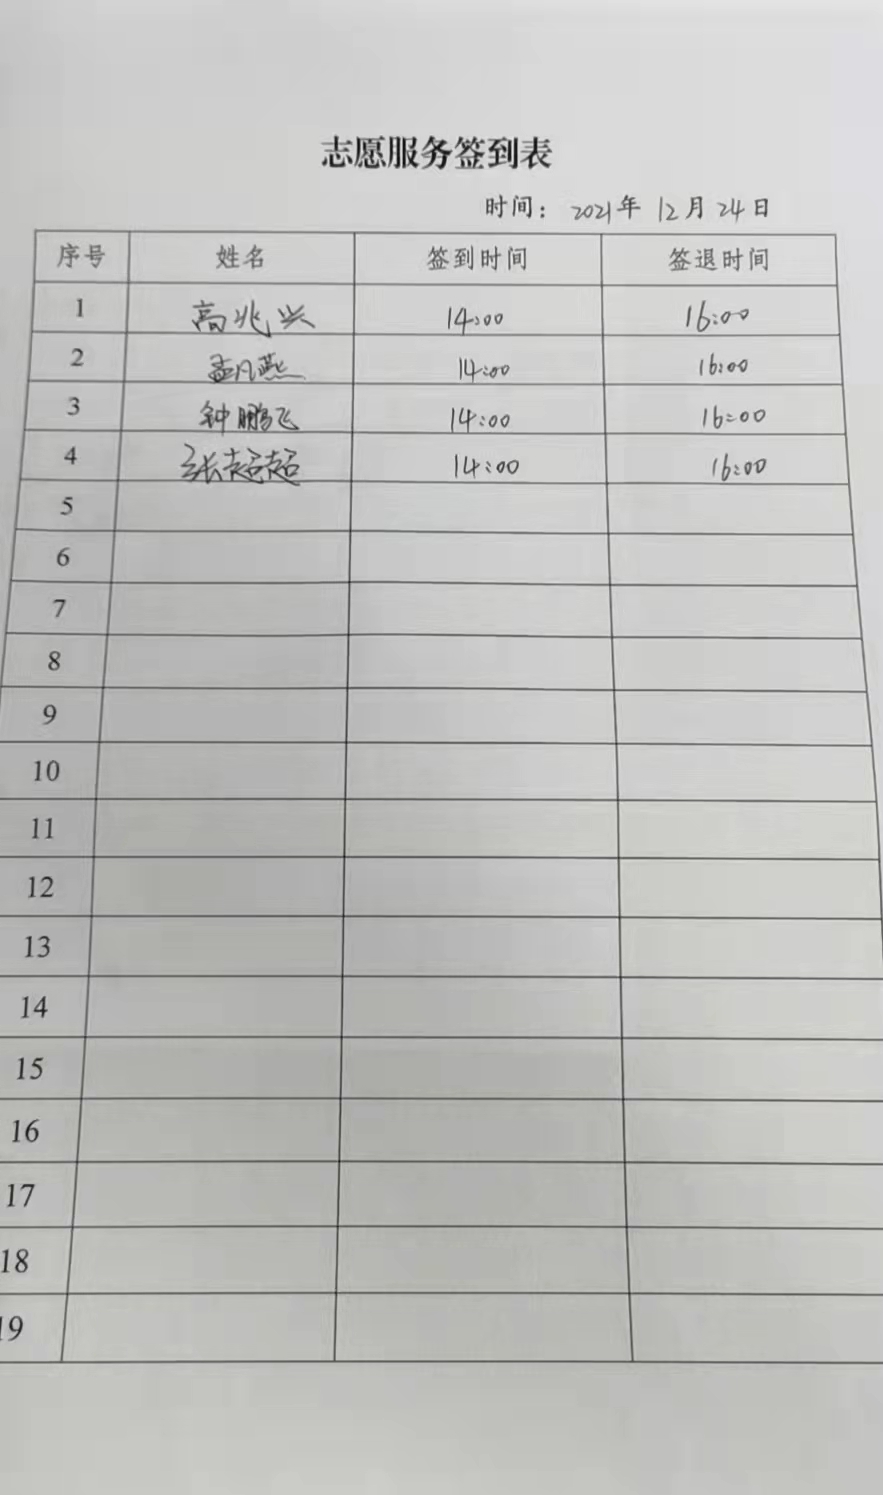 志愿服务签到表
时间: 2021年 12月 24日
序号 姓名 签到时间 签退时间
1 高兆兴 14:00 16:00
2 孟凡燕 14:00 16:00
3 钟鹏飞 14:00 16:00
4 张超超 14:00 16:00
5
6
7
8
9
10
11
12
13
14
15
16
17
18
19